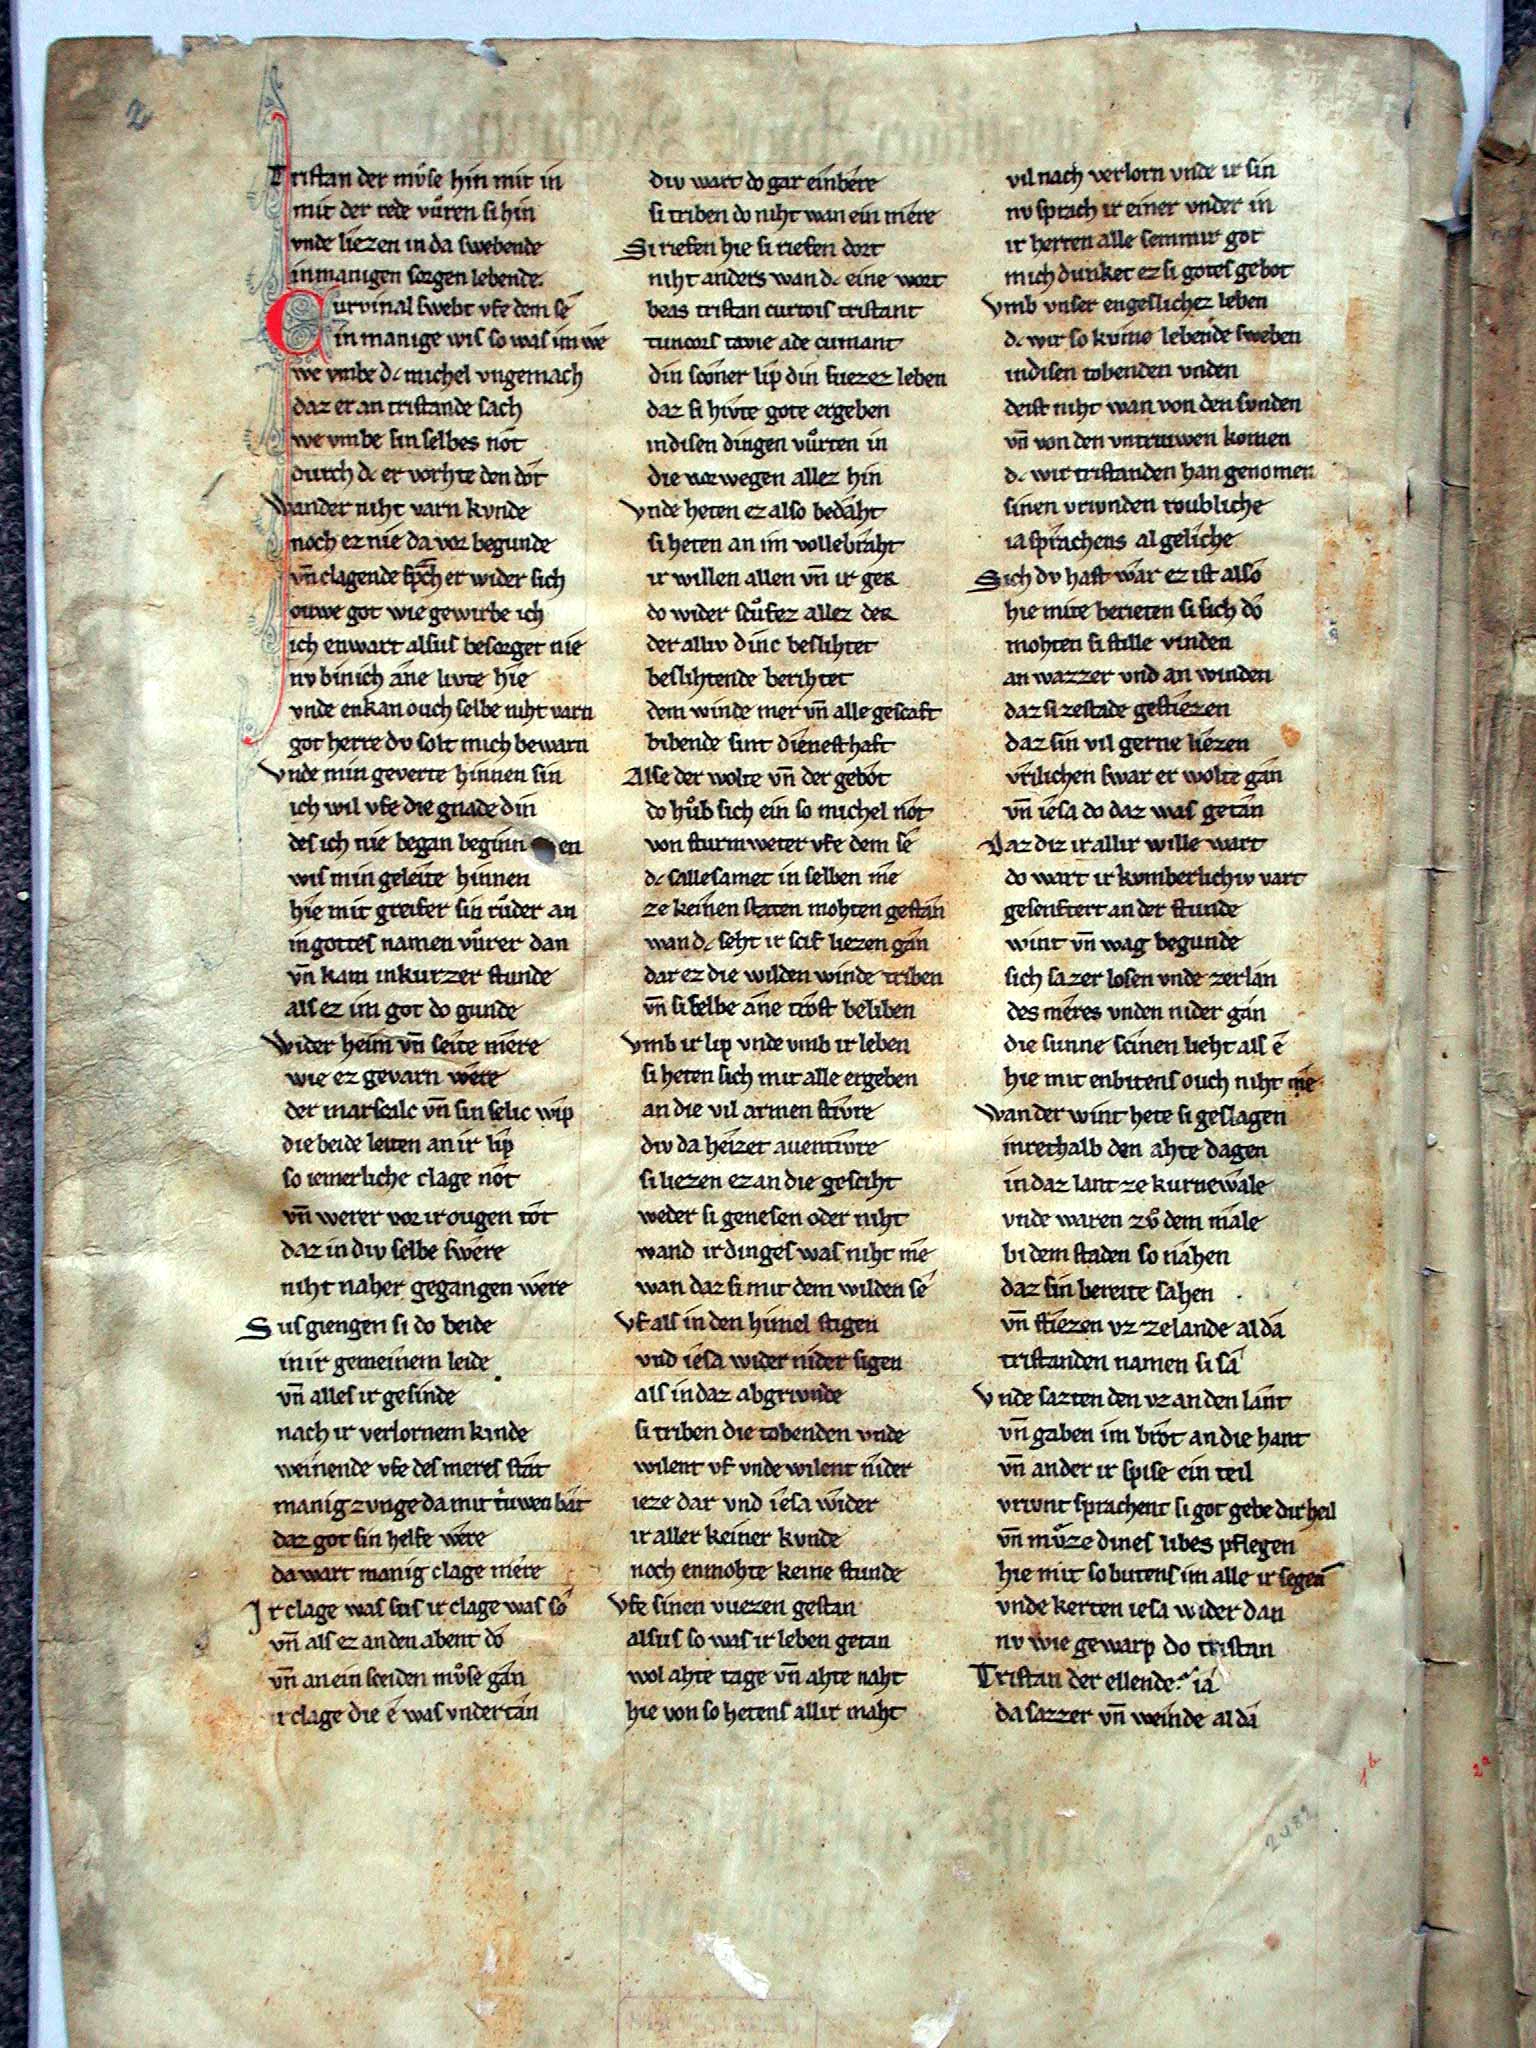 2
Tristan der mvͦse hin mit in
mit der rede vuͦren si hin
vnde liezen in da swebende
in manigen sorgen lebende
Curvinal swebt vfe dem sê
in manige wis so was im we
we vmbe dc michel vngemach
daz er an tristande sach
we vmbe sin selbes not
durch dc er vorhte den dôt
wander niht varn kvnde
noch ez nie da vor begunde
vn̄ clagende sp̄ch er wider sich
ouwe got wie gewirbe ich
ich enwart alsus besorget nie
nv bin ich âne livte hie
vnde enkan ouch selbe niht varn
got herre dv solt mich bewarn
vnde min geverte hinnen sin
ich wil vfe die gnade din
des ich nie began beginnen
wis min geleite hinnen
hie mit greifer sin rvͦder an
in gottes namen vuͦrer dan
vn̄ kam in kurzer stunde
als ez im got do gunde
wider heim vn̄ seite mêre
wie ez gevarn wêre
der marscalc vn̄ sin selic wip
die beide leiten an ir lip
so iemerliche clage nôt
vn̄ werer vor ir ougen tôt
daz in div selbe swêre
niht naher gegangen wêre
Sus giengen si do beide
in ir gemeinem leide
vn̄ alles ir gesinde
nach ir verlornem kinde
weinende vfe des meres stat
manig zvnge da mit trûwen bat
daz got sin helfe wêre
da wart manig clage mêre
Ir clage was sus ir clage was so
vn̄ als ez an den abent dô
vn̄ an ein sceiden mvͦse gân
ir clage die ê was vndertân
div wart do gar einbêre
si triben do niht wan ein mêre
Si riefen hie si riefen dort
niht anders wan dc eine wort
beas tristan curtois tristant
tuncors tavie ade cumant
din scôner lip din suezez leben
daz si hivte gote ergeben
in disen dingen vuͦrten in
die norwegen allez hin
vnde heten ez also bedâht
si heten an im vollebrâht
ir willen allen vn̄ ir ger
do wider scuͦfez allez der
der alliv dinc beslihtet
beslihtende berihtet
dem winde mer vn̄ alle gescaft
bibende sint dienesthaft
Alse der wolte vn̄ der gebôt
do huͦb sich ein so michel nôt
von sturmweter vfe dem sê
dc sallesamet in selben mê
ze keinen staten mohten gestân
wan dc seht ir scif liezen gân
dar ez die wilden winde triben
vn̄ si selbe âne trôst beliben
vmb ir lip vnde vmb ir leben
si heten sich mit alle ergeben
an die vil armen stivre
div da heizet auentivre
si liezen ez an die gesciht
weder si genesen oder niht
wand ir dinges was niht mê
wan daz si mit dem wilden sê
vf als in den himel stigen
vnd iesa wider nider sigen
als in daz abgrvnde
si triben die tobenden vnde
wilent vf vnde wilent nider
ieze dar vnd iesa wider
ir aller keiner kvnde
noch enmohte keine stunde
vfe sinen vuezen gestan
alsus so was ir leben getan
wol ahte tage vn̄ ahte naht
hie von so hetens allir maht
vil nach verlorn vnde ir sin
nv sprach ir einer vnder in
ir herren alle semmir got
mich dunket ez si gotes gebot
vmb vnser engeslichez leben
dc wir so kvme lebende sweben
in disen tobenden vnden
deist niht wan von den svnden
vn̄ von den vntruiwen komen
dc wir tristanden han genomen
sinen vrivnden roubliche
ia sprâchens al geliche
Sich dv hast wâr ez ist alsô
hie mite berieten si sich dô
mohten si stille vinden
an wazzer vnd an winden
daz si zestade gestiezen
daz sin vil gerne liezen
vrilichen swar er wolte gân
vn̄ iesa do daz was getân
Daz diz ir allir wille wart
do wart ir kvmberlichiv vart
gesenftert an der stunde
wint vn̄ wag begunde
sich sa zer losen vnde zerlân
des mêres vnden nider gân
die sunne scinen lieht als ê
hie mit enbitens ouch niht mê
wan der wint hete si geslagen
inrethalb den ahte dagen
in daz lant ze kurnewâle
vnde waren zvͦ dem mâle
bi dem staden so nâhen
daz sin bereite sahen
vn̄ stiezen vz ze lande al dâ
tristanden namen si sâ
vnde sazten den vz an den lant
vn̄ gaben im brôt an die hant
vn̄ ander ir spise ein teil
vrivnt sprachent si got gebe dir heil
vn̄ mvͦze dines libes pflegen
hie mit so butens im alle ir segen
vnde kerten iesa wider dan
nv wie gewarp do tristan
Tristan der ellende iâ
da sazzer vn̄ weinde al dâ
1b
2a
2482